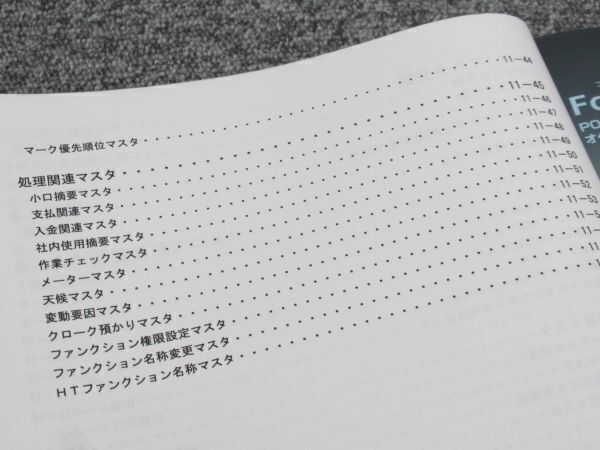 マーク優先順位マスタ・・・・・・・・・・・・・・・・・・11－44
処理関連マスタ・・・・・・・・・・・・・・・・・・11－45
小口摘要マスタ・・・・・・・・・・・・・・・・・・11－46
支払関連マスタ・・・・・・・・・・・・・・・・・・11－47
入金関連マスタ・・・・・・・・・・・・・・・・・・11－48
社内使用摘要マスタ・・・・・・・・・・・・・・・・・・11－49
作業チェックマスタ・・・・・・・・・・・・・・・・・・11－50
メーターマスタ・・・・・・・・・・・・・・・・・・11－51
天候マスタ・・・・・・・・・・・・・・・・・・11－52
変動要因マスタ・・・・・・・・・・・・・・・・・・11－53
クローク預かりマスタ・・・・・・・・・・・・・・・・・・11－5
ファンクション権限設定マスタ・・・・・・・・・・・・・・・・・・11－
ファンクション名称変更マスタ・・・・・・・・・・・・・・・・・・1
ＨＴファンクション名称マスタ・・・・・・・・・・・・・・・・・・
Fo
PO